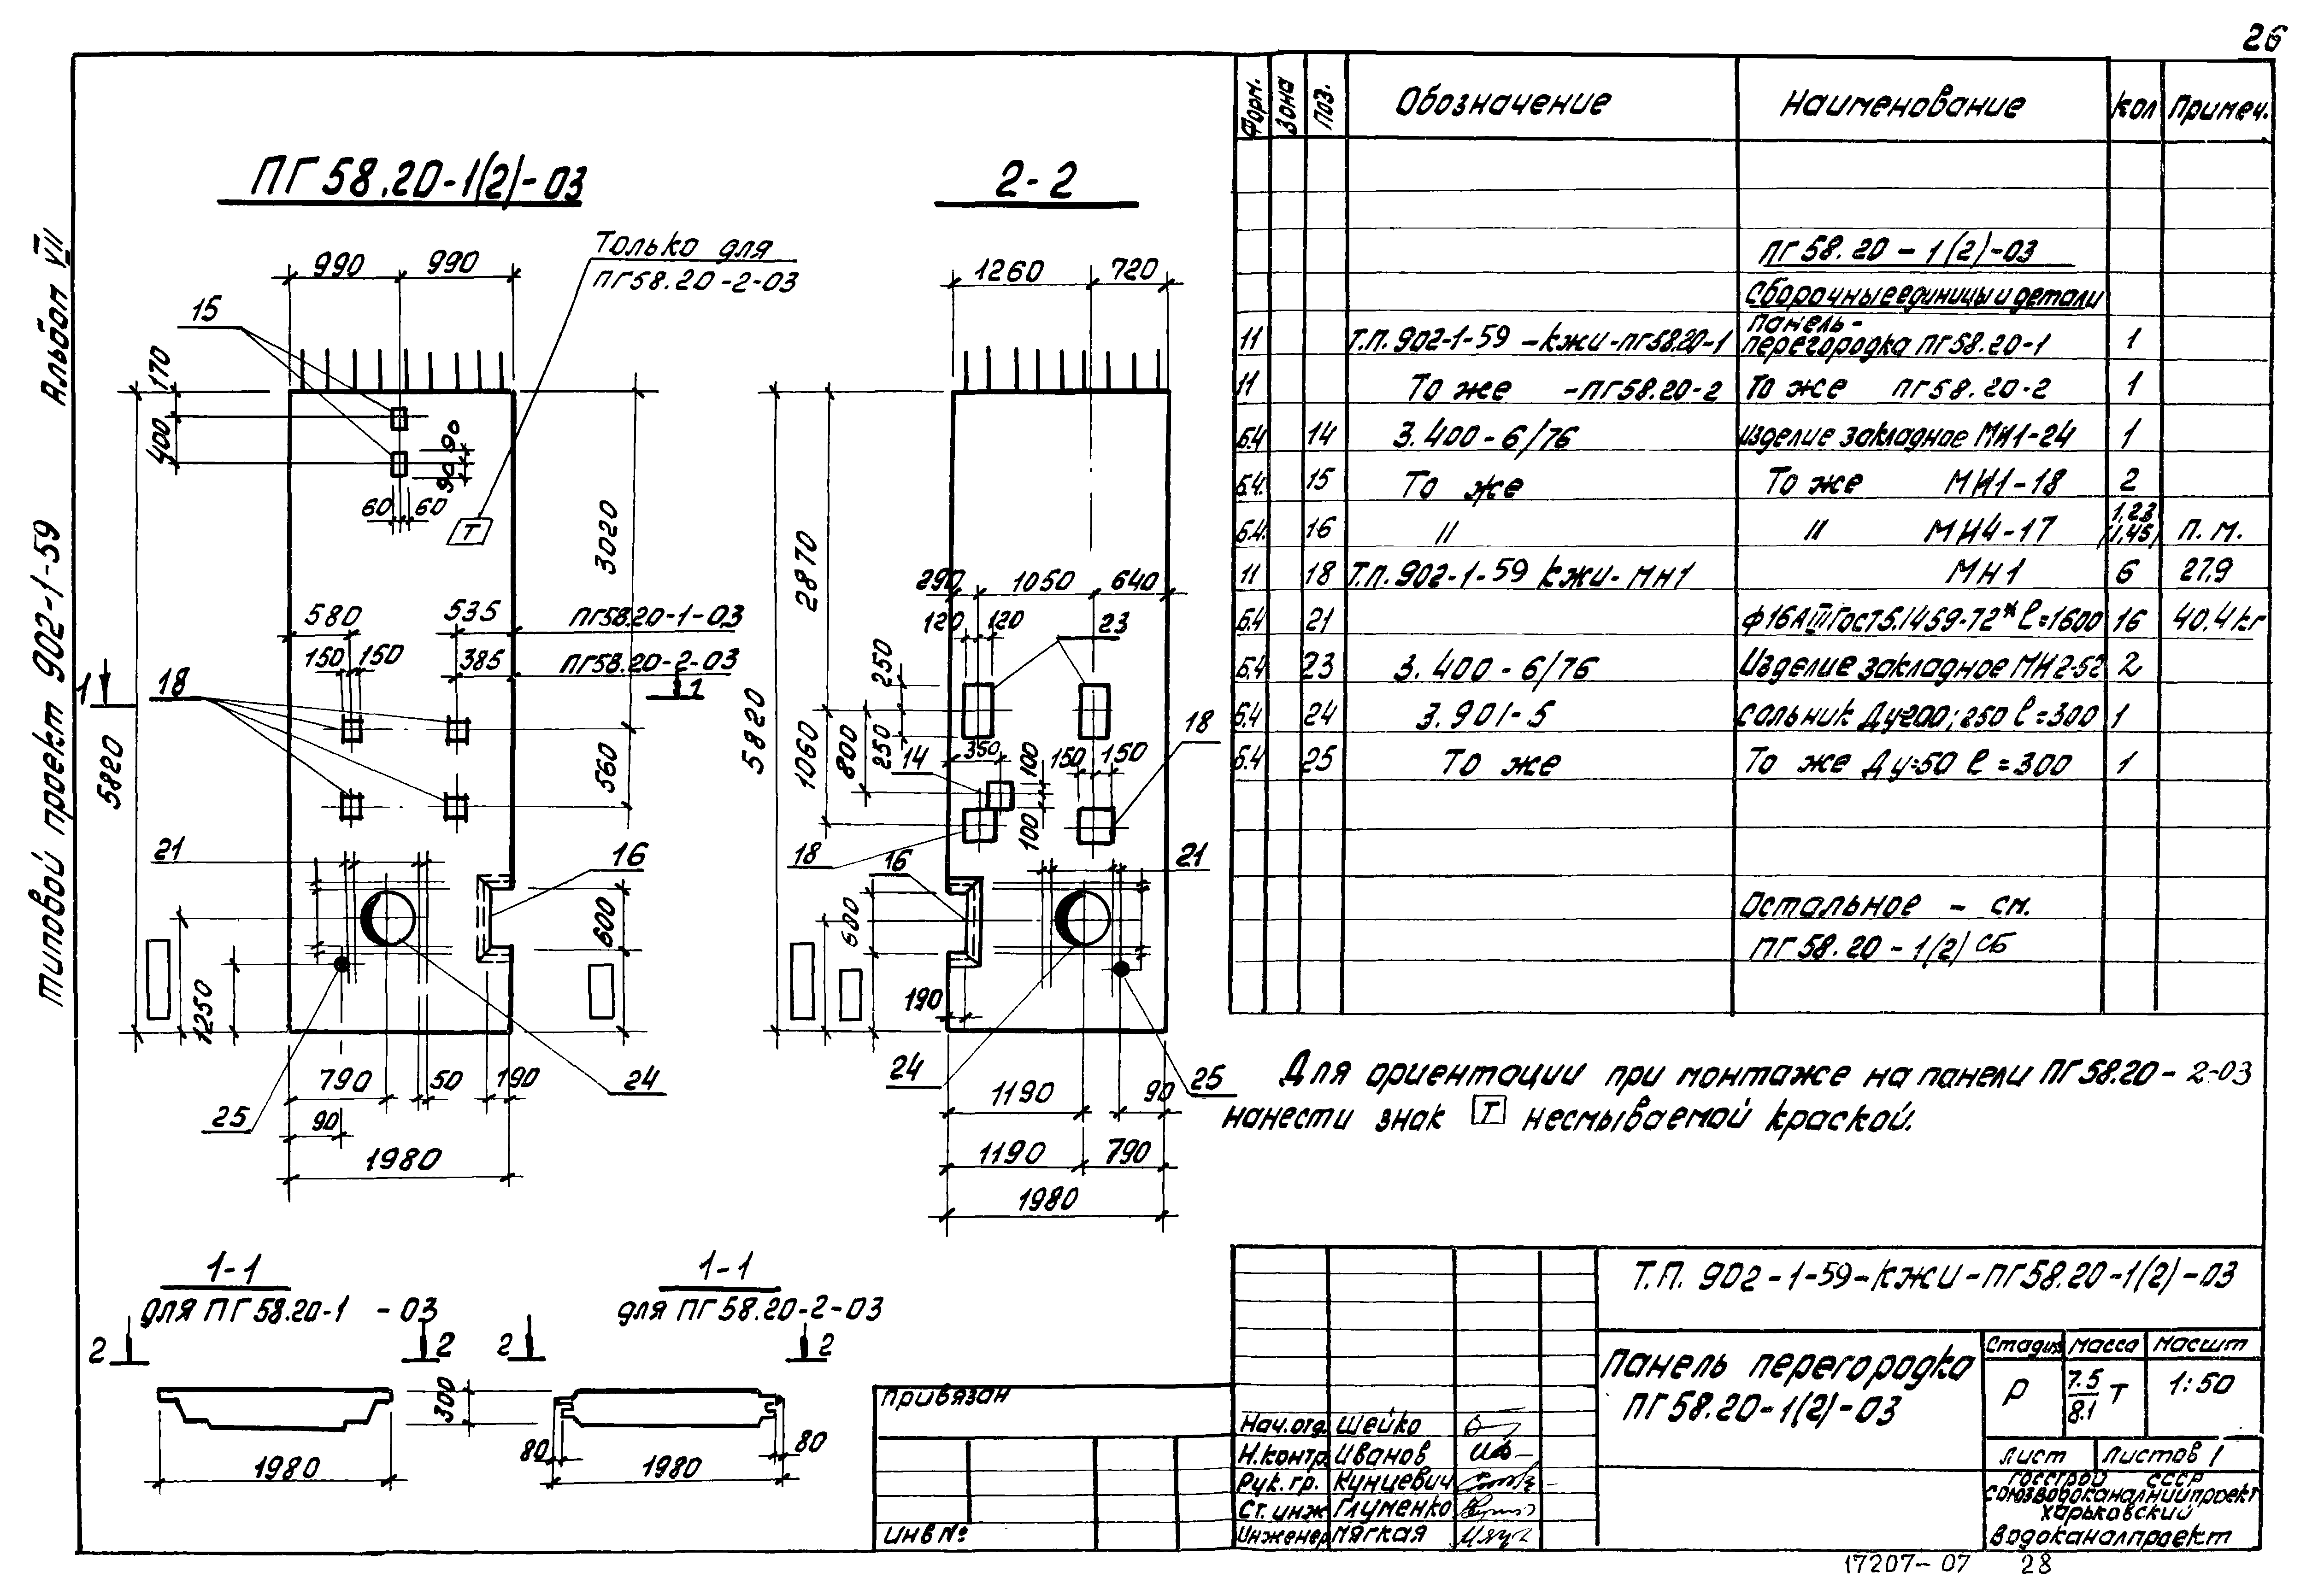 26
Альбом VII
Типовой проект 902-1-59
ПГ58.20-1(2)-03
2-2
Только для
ПГ58.20-2-03
990
990
15
170
400
90
90
60
60
Т
3020
580
535
ПГ58.20-1-03
150
150
385
ПГ58.20-2-03
1
1
18
5820
560
21
16
600
1250
790
50
190
24
25
90
1980
1260
720
2870
290
1050
640
120
120
23
250
250
5820
1060
800
14
350
100
100
150
150
18
18
16
21
600
190
24
25
1190
90
1190
790
1980
1-1
для ПГ58.20-1 -03
2
2
300
1980
1-1
для ПГ58.20-2-03
2
2
80
80
1980
Форм. Зона Поз. Обозначение Наименование Кол Примеч.
ПГ58.20-1(2)-03
Сборочные единицы и детали
11 Т.П. 902-1-59-КЖИ-ПГ58.20-1 Панель-перегородка ПГ58.20-1 1
11 То же -ПГ58.20-2 То же ПГ58.20-2 1
Б.4 14 3.400-6/76 Изделие закладное МН1-24 1
Б.4. 15 То же То же МН1-18 2
Б.4. 16 " " МН4-17 1,23 (1,45) п.м.
11 18 Т.П. 902-1-59 КЖИ-МН1 МН1 6 27.9
Б.4 21 ф16АIII ГОСТ5.1459-72* l=1600 16 40.4кг
Б.4 23 3.400-6/76 Изделие закладное МН2-52 2
Б.4 24 3.901-5 Сальник Ду=200; 250 l=300 1
Б.4 25 То же То же Ду=50 l=300 1
Остальное - см.
ПГ58.20-1(2)СБ
Для ориентации при монтаже на панели ПГ58.20-2-03
нанести знак Т несмываемой краской.
Привязан
Инв №
Нач.отд. Шейко
Н.контр. Иванов
Рук.гр. Кунцевич
Ст.инж Глуменко
Инженер Мягкая
Т.П. 902-1-59-КЖИ-ПГ58.20-1(2)-03
Панель перегородка
ПГ58.20-1(2)-03
Стадия Масса Масшт
Р 7.5/8.1 т 1:50
Лист Листов 1
Госстрой СССР
Союзводоканалниипроект
Харьковский
Водоканалпроект
17207-07 28